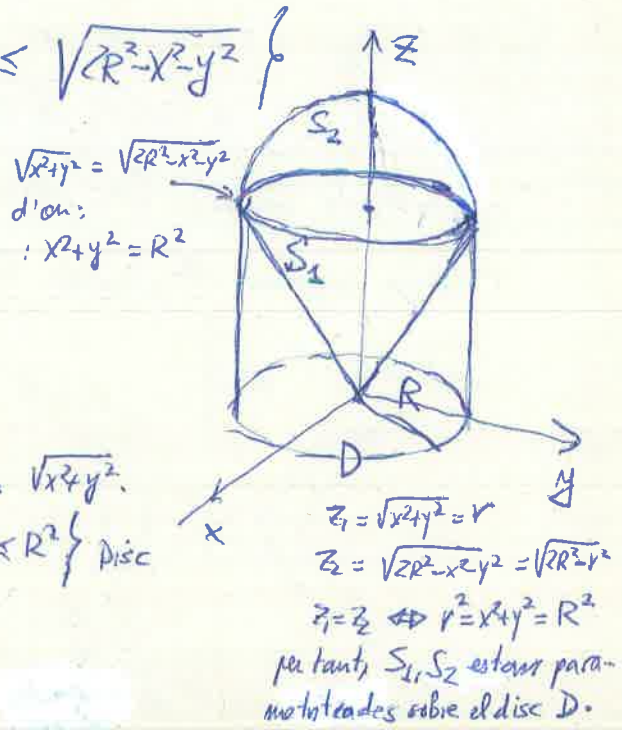 ≤ √(2R²-x²-y²) }
Z
S₂
√(x²+y²) = √(2R²-x²-y²)
d'on:
: x²+y² = R²
S₁
R
D
√x²+y².
y
x
≤ R² } Disc
Z₁ = √(x²+y²) = r
Z₂ = √(2R²-x²-y²) = √(2R²-r²)
Z₁=Z₂ ⇔ r²=x²+y²=R²
per tant, S₁, S₂ estan para-
metritzades sobre el disc D.